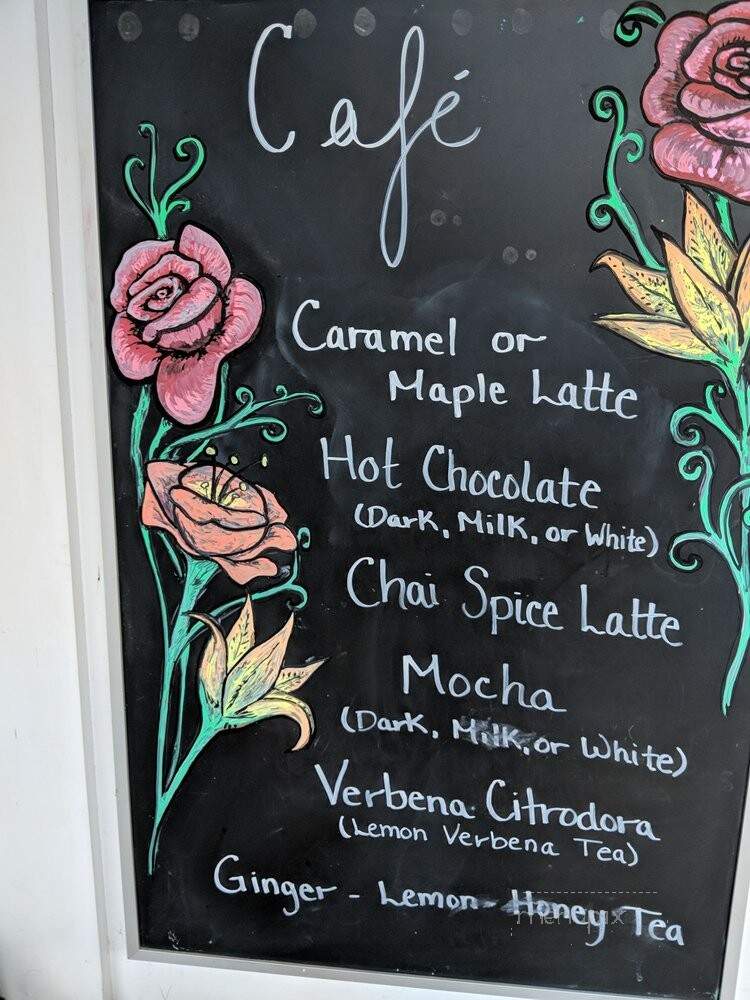 Café
Caramel or
Maple Latte
Hot Chocolate
(Dark, Milk, or White)
Chai Spice Latte
Mocha
(Dark, Milk, or White)
Verbena Citrodora
(Lemon Verbena Tea)
Ginger - Lemon - Honey Tea
menupix